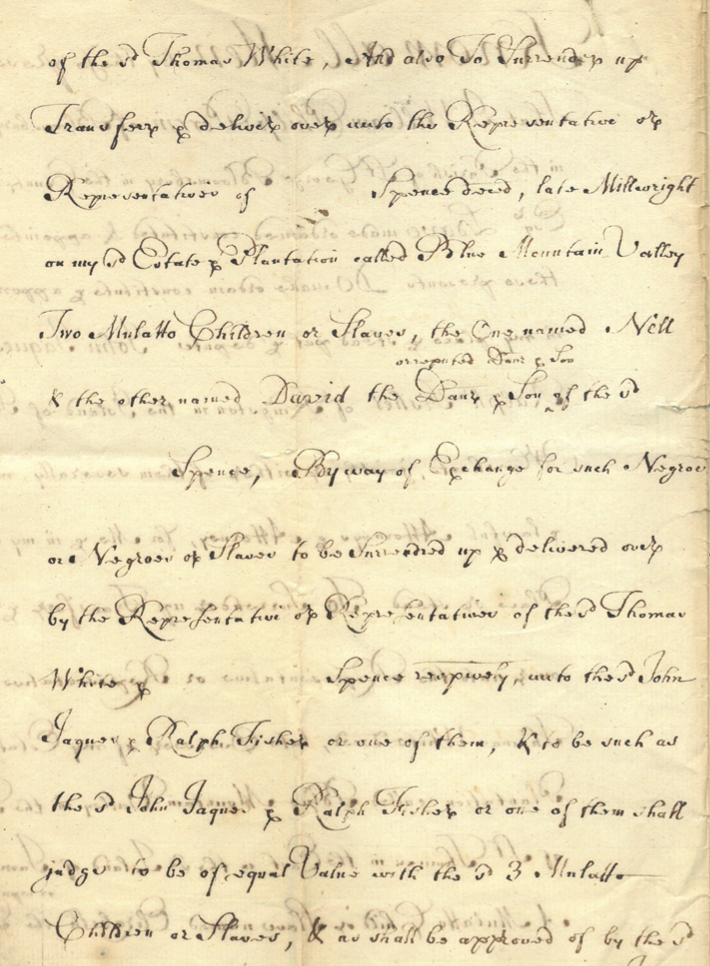 of the sd Thomas White, And also To Surrender up
Transferr & deliver over unto the Representative or
Representatives of Spence decd, late Millwright
on my sd Estate & Plantation called Blue Mountain Valley
Two Mulatto Children or Slaves, the One named Nell
or reputed Daur & Son
& the other named David the Daur & Son of the sd
Spence, By way of Exchange for such Negroe
or Negroes or Slaves to be Surrendred up & delivered over
by the Representative or Representatives of the sd Thomas
White & Spence respively, unto the sd John
Jaques & Ralph Fisher or one of them, & to be such as
the sd John Jaques & Ralph Fisher or one of them shall
judge to be of equal Value with the sd 3 Mulatto
Children or Slaves, & as shall be approved of by the sd